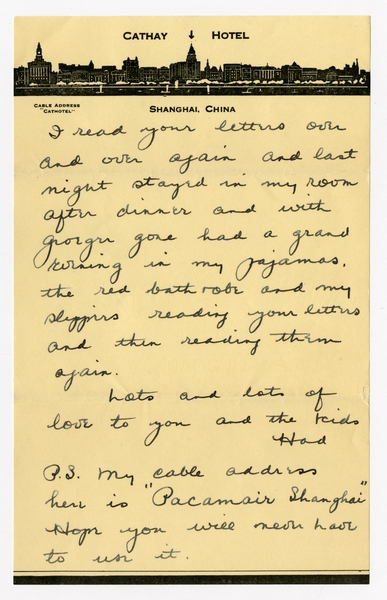 CATHAY HOTEL
CABLE ADDRESS
"CATHOTEL"
SHANGHAI, CHINA
I read your letters over
and over again and last
night stayed in my room
after dinner and with
George gone had a grand
evening in my pajamas,
the red bath robe and my
slippers reading your letters
and then reading them
again.
Lots and lots of
love to you and the kids
Had
P.S. My cable address
here is "Pacamair Shanghai"
Hope you will never have
to use it.